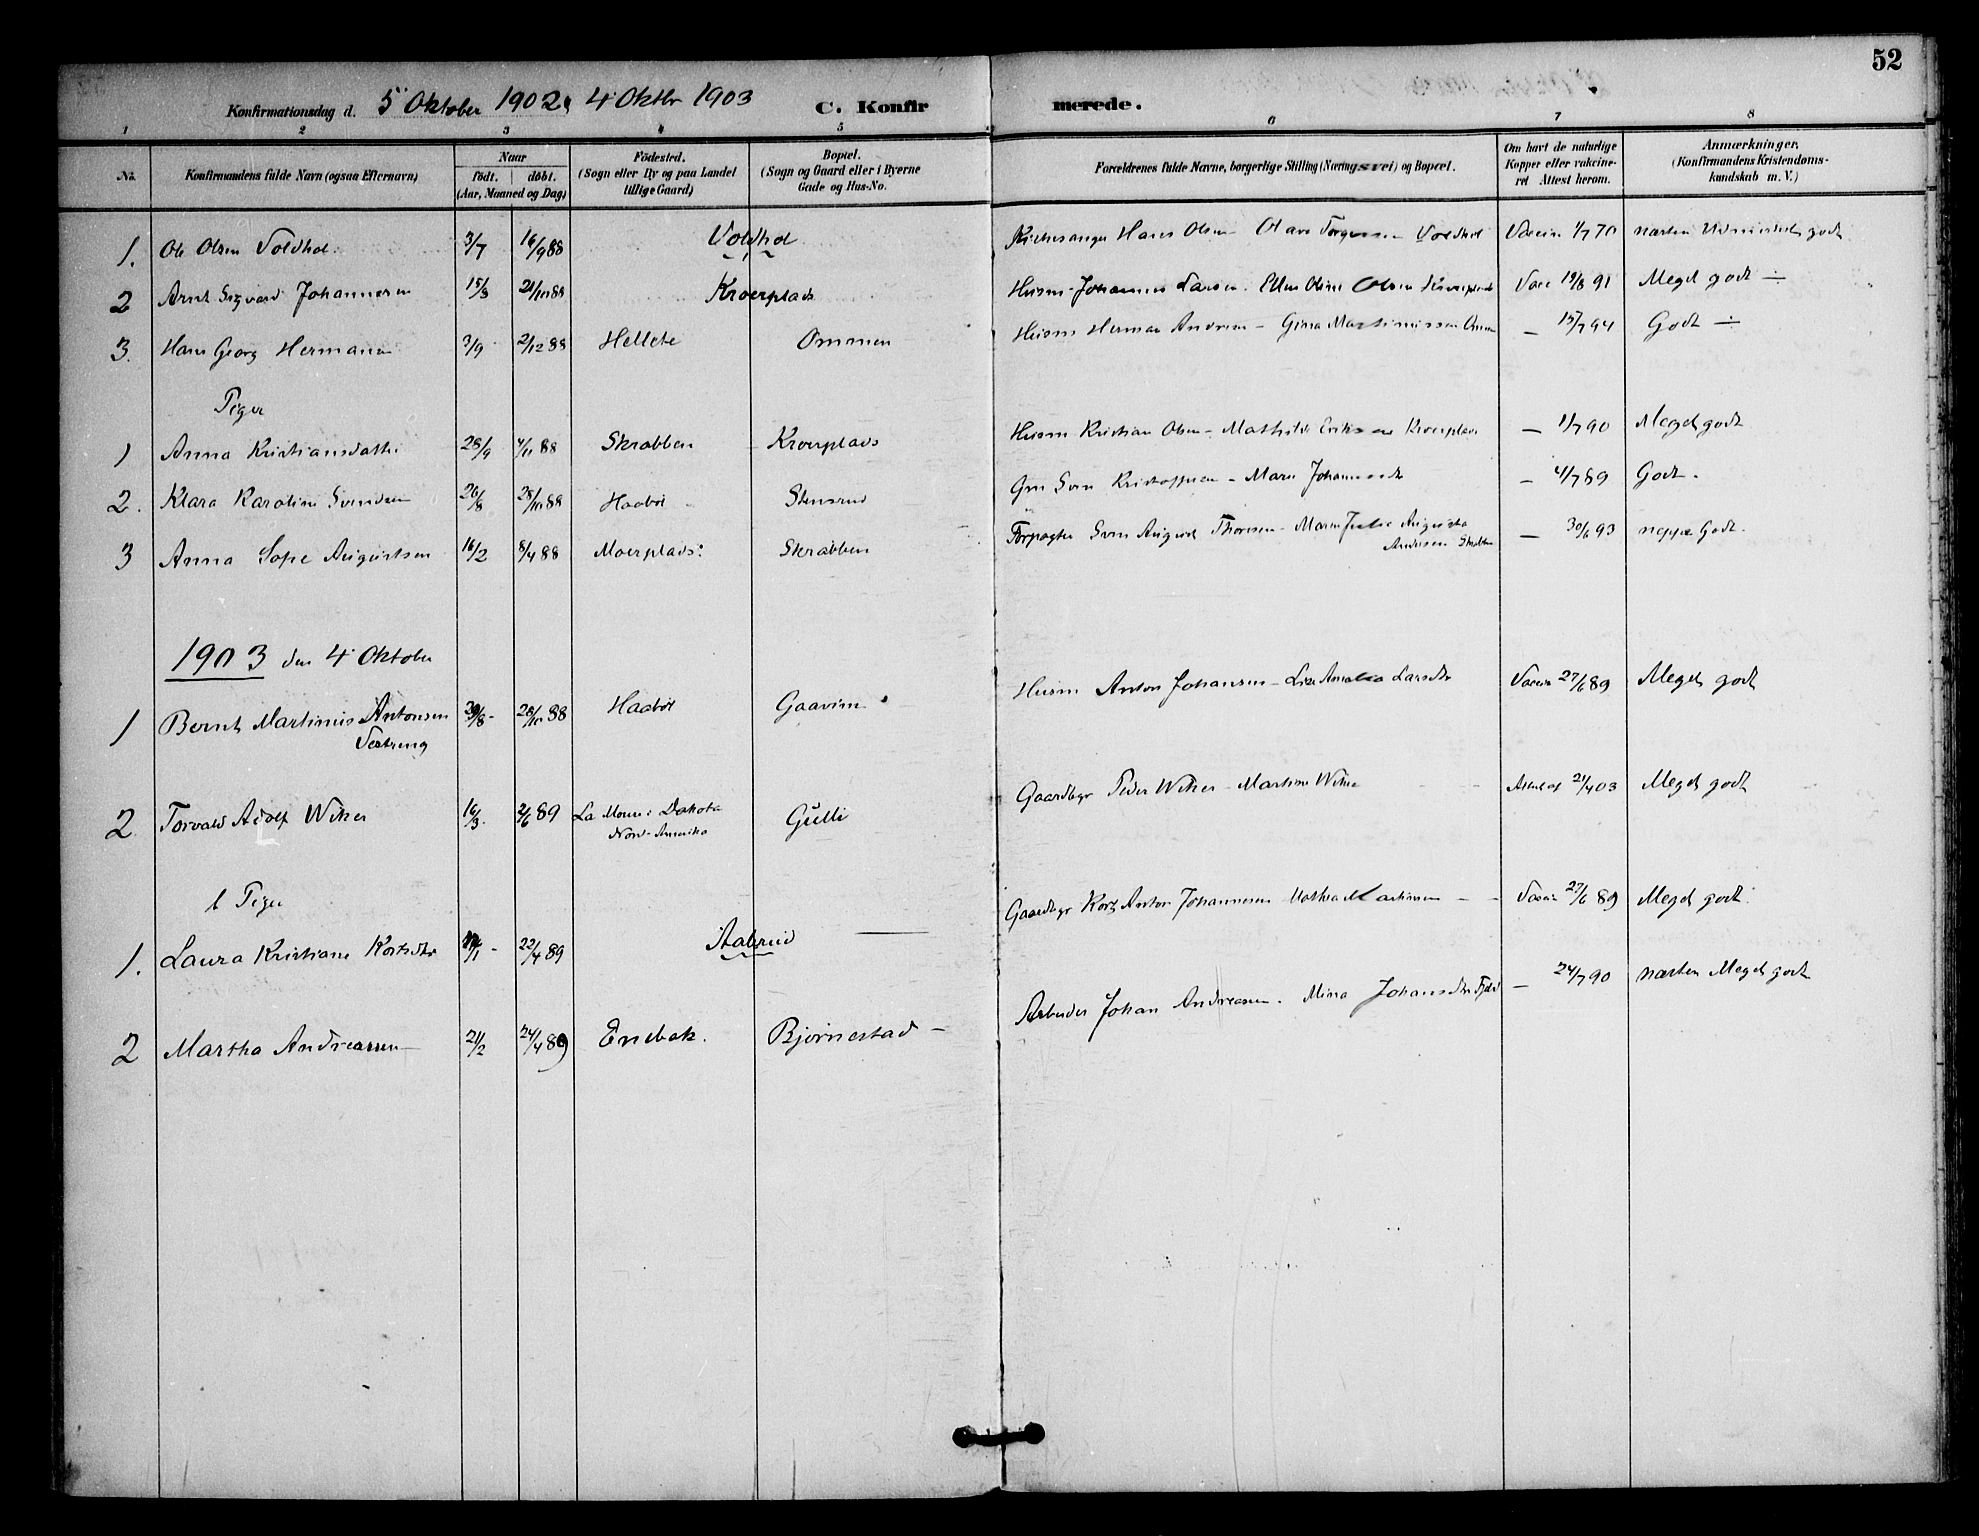 52
Konfirmationsdag d. 5 Oktober 1902, 4 Oktbr 1903 C. Konfirmerede.
1 2 3 4 5 6 7 8
No. Konfirmandens fulde Navn (ogsaa Efternavn) Naar født. døbt. (Aar, Maaned og Dag) Fødested. (Sogn eller By og paa Landet tillige Gaard) Bopæl. (Sogn og Gaard eller i Byerne Gade og Hus-No. Forældrenes fulde Navne, borgerlige Stilling (Næringsvei) og Bopæl. Om havt de naturlige Kopper eller vakcineret Attest herom. Anmærkninger, (Konfirmandens Kristendomskundskab m. V.)
1. Ole Olsen Voldhol 3/7 16/9 88 Voldhol Kirkesanger Hans Olsen - Olava Voldhol Vaccin 1/7 70 næsten godt
2 Arnt Sigvard Johannesen 15/8 21/10 88 Kroerplads Husm Johannes Larsen. Ellen Oline Olsen Vacc 19/8 91 Meget godt ÷
3. Hans Georg Hermansen 3/9 2/12 88 Hellete Ommen Husm Herman Andersen - Gina Martinussen — 15/7 94 Godt ÷
Piger
1 Anna Kristiansdatter 28/9 4/11 88 Skrabben Kroerplads Husm Kristian Olsen - Mathilde Eriksen Kroerplads — 1/7 90 Meget godt
2. Klara Karoline Svendsen 26/8 28/10 88 Haabøl Stensrud Grn Sven Kristoffersen - Maren Johannesdtr — 4/7 89 Godt.
3 Anna Sofie Augustsen 16/2 8/4 88 Moerplads: Skrabben Forpagter Sven August Thoresen - Maren Julie Augusta
Andersen Skrabben — 30/6 93 neppe Godt.
1903 den 4 Oktober
1 Bernt Martinius Antonsen 28/10 88 Haabøl Gaavim Husm Anton Johansen - Lise Amalia Larsdtr Vaccin 27/6 89 Meget godt
Vestreng
2 Torvald Adolf Wiker 16/3 2/6 89 La Moure Dakota Gulli Gaardbgr Peder Wiker - Martine Wiker Attest af 21/4 03 Meget godt
Nord-Amerika
b Piger
1. Laura Kristiane Kortsdtr 22/4 89 Aabrud Gaardbgr Kort Anton Johannesen Mathea Martinsen Vaccin 27/6 89 Meget godt.
2 Martha Andreassen 21/2 24/4 89 Enebak. Bjørnestad Arbeider Johan Andreasen. Mina Johansdtr — 24/7 90 næsten Meget godt